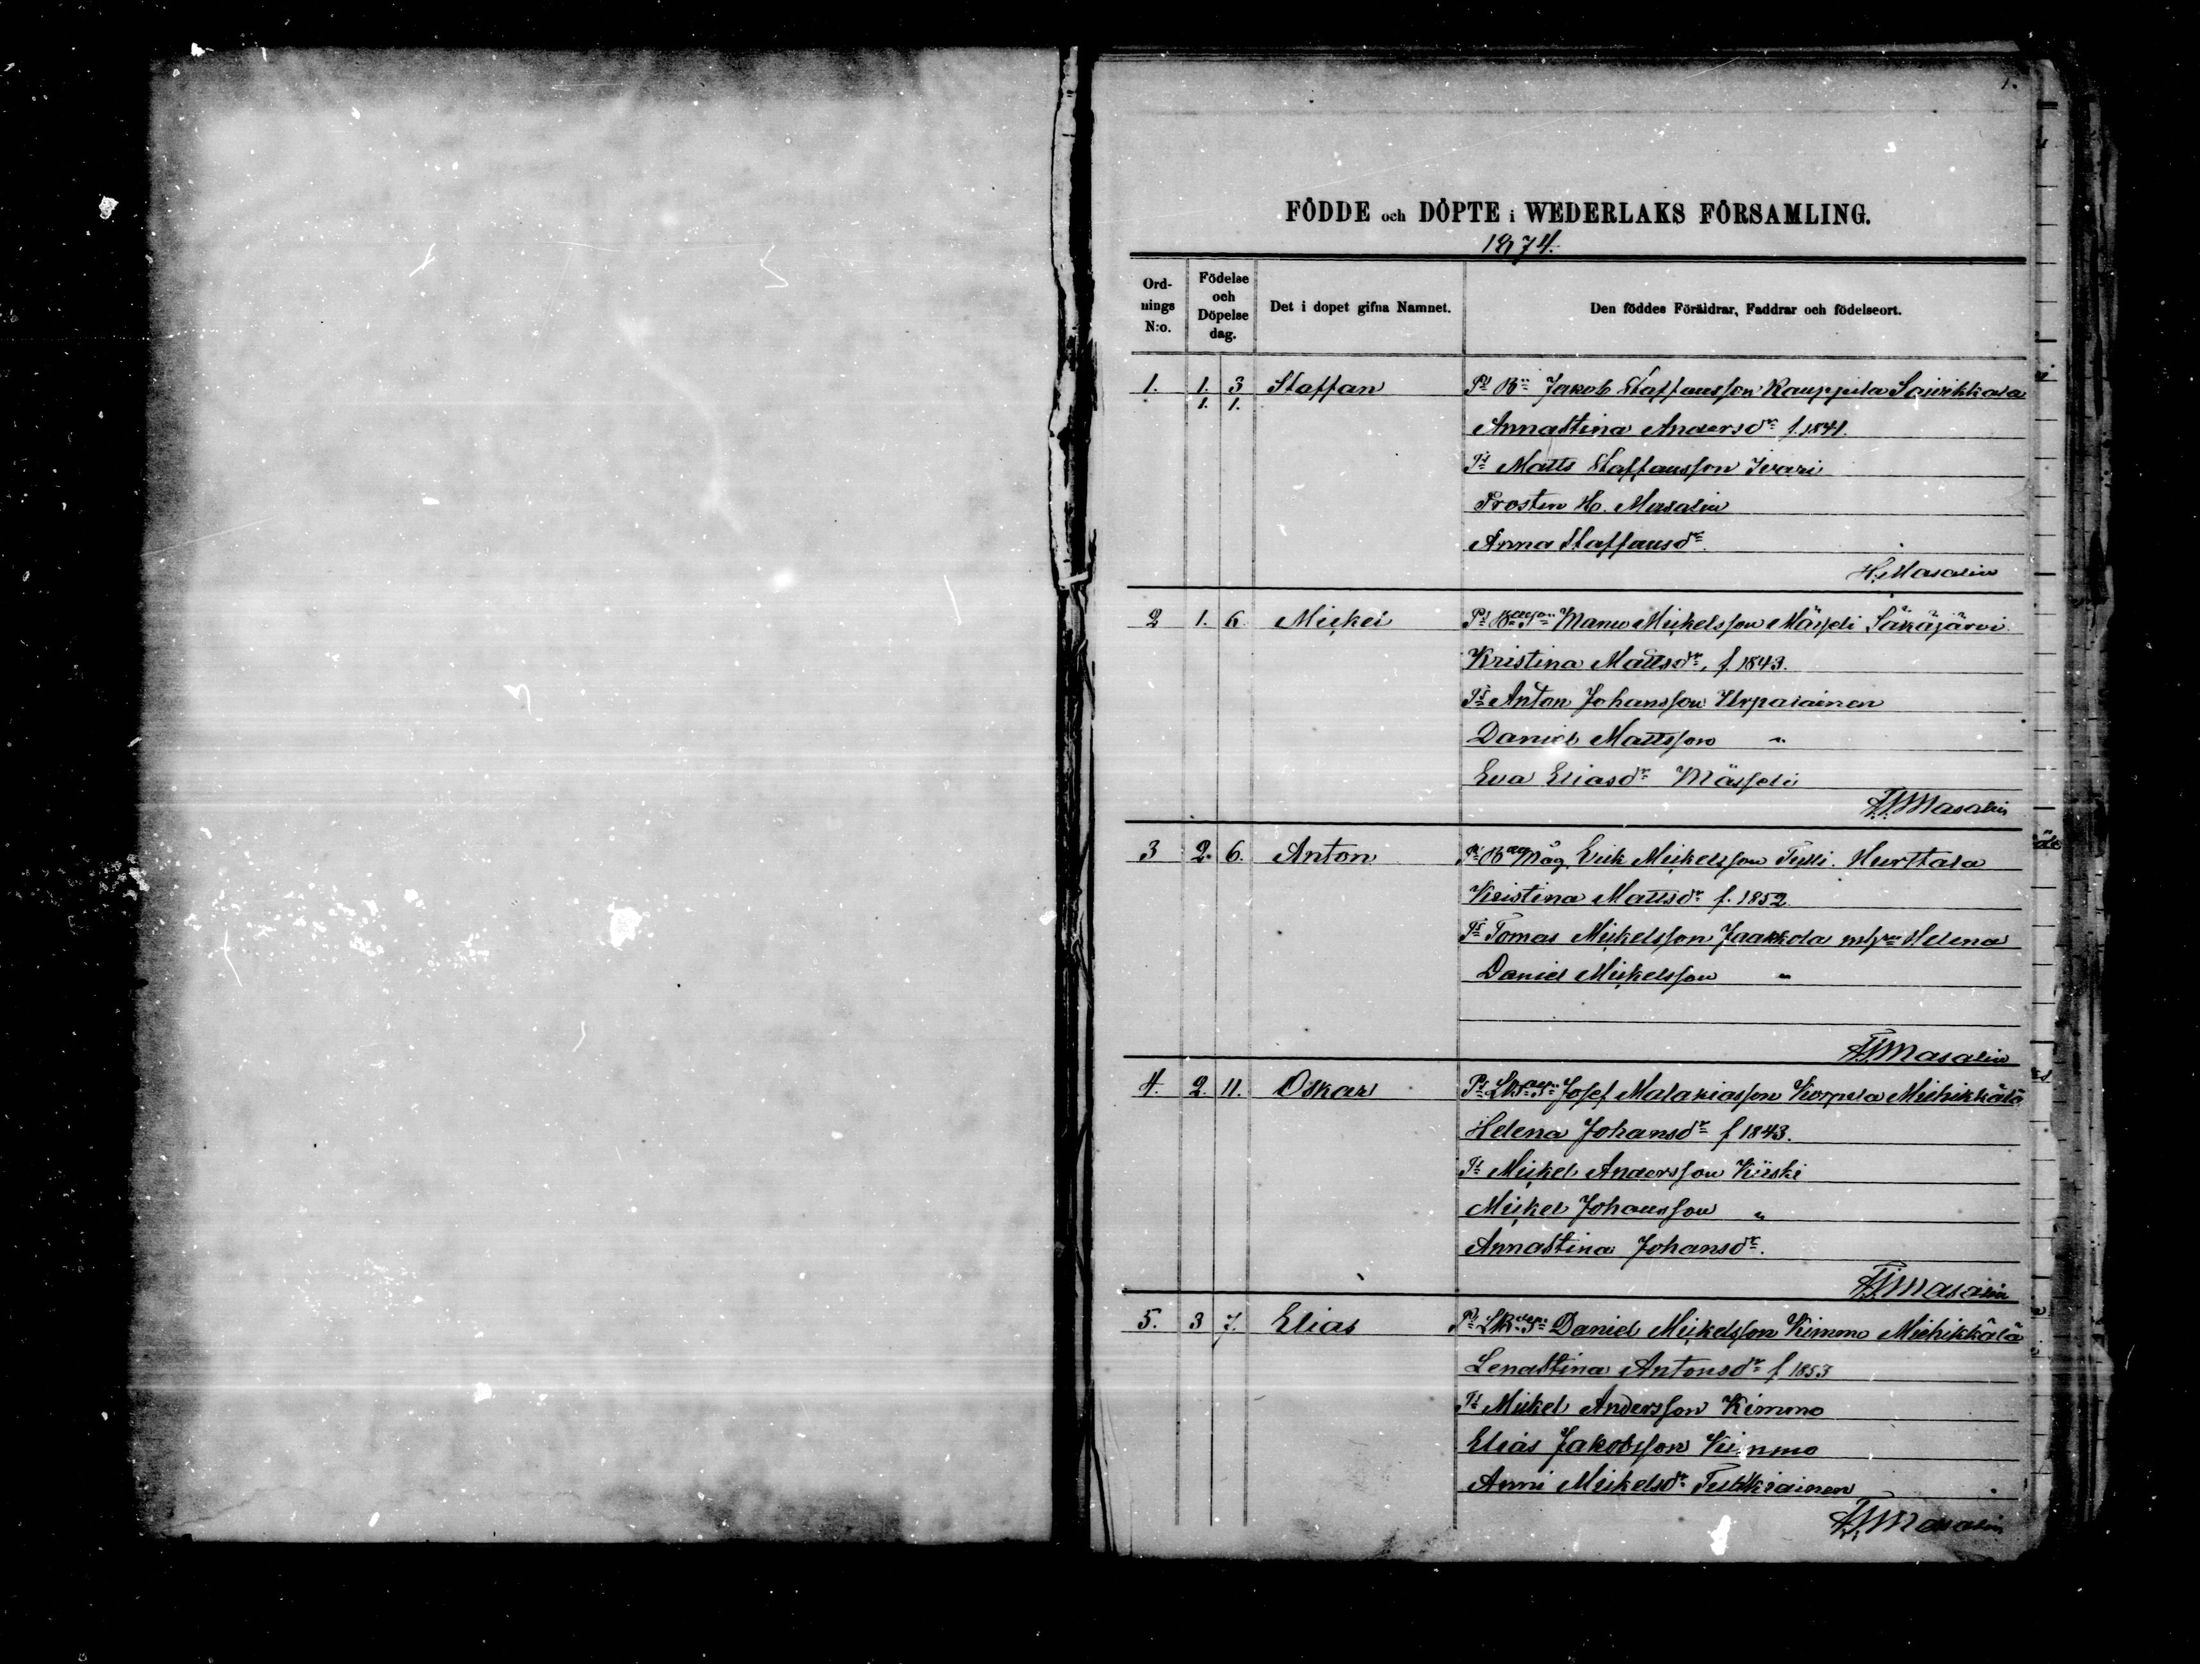 1.
FÖDDE och DÖPTE i WEDERLAKS FÖRSAMLING.
1874.
Ord-nings N:o. Födelse och Döpelse dag. Det i dopet gifna Namnet. Den föddes Föräldrar, Faddrar och födelseort.
1. 1. 3 Staffan Jakob Staffansson Kauppila
1. 1.
Annastina Andersdr f. 1841.
Matts Staffansson
Prosten H. Masalin
Anna Staffansdr.
H. Masalin
2 1. 6 Mickel Mickelsson Säkäjärvi.
Kristina Mattsdr, f. 1843.
Anton Johansson Urpalainen
Daniel Mattsson "
Eva Eliasdr Mässeli
Masalin
3 2. 6. Anton Erik Mickelsson Hurttala
Kristina Mattsdr f. 1852
Tomas Mickelsson Jaakkola Helena
Daniel Mickelsson "
Masalin
4. 2. 11. Oskar Josef Malakiasson Korpela Miehikkälä
Helena Johansdr f 1843.
Mickel Andersson Kiiski
Mickel Johansson "
Annastina Johansdr.
Masalin
5. 3 7. Elias Daniel Mickelsson Kimmo Miehikkälä
Lenastina Antonsdr f 1853
Mickel Andersson Kimmo
Elias Jakobsson Kimmo
Anni Mickelsdr
Masalin